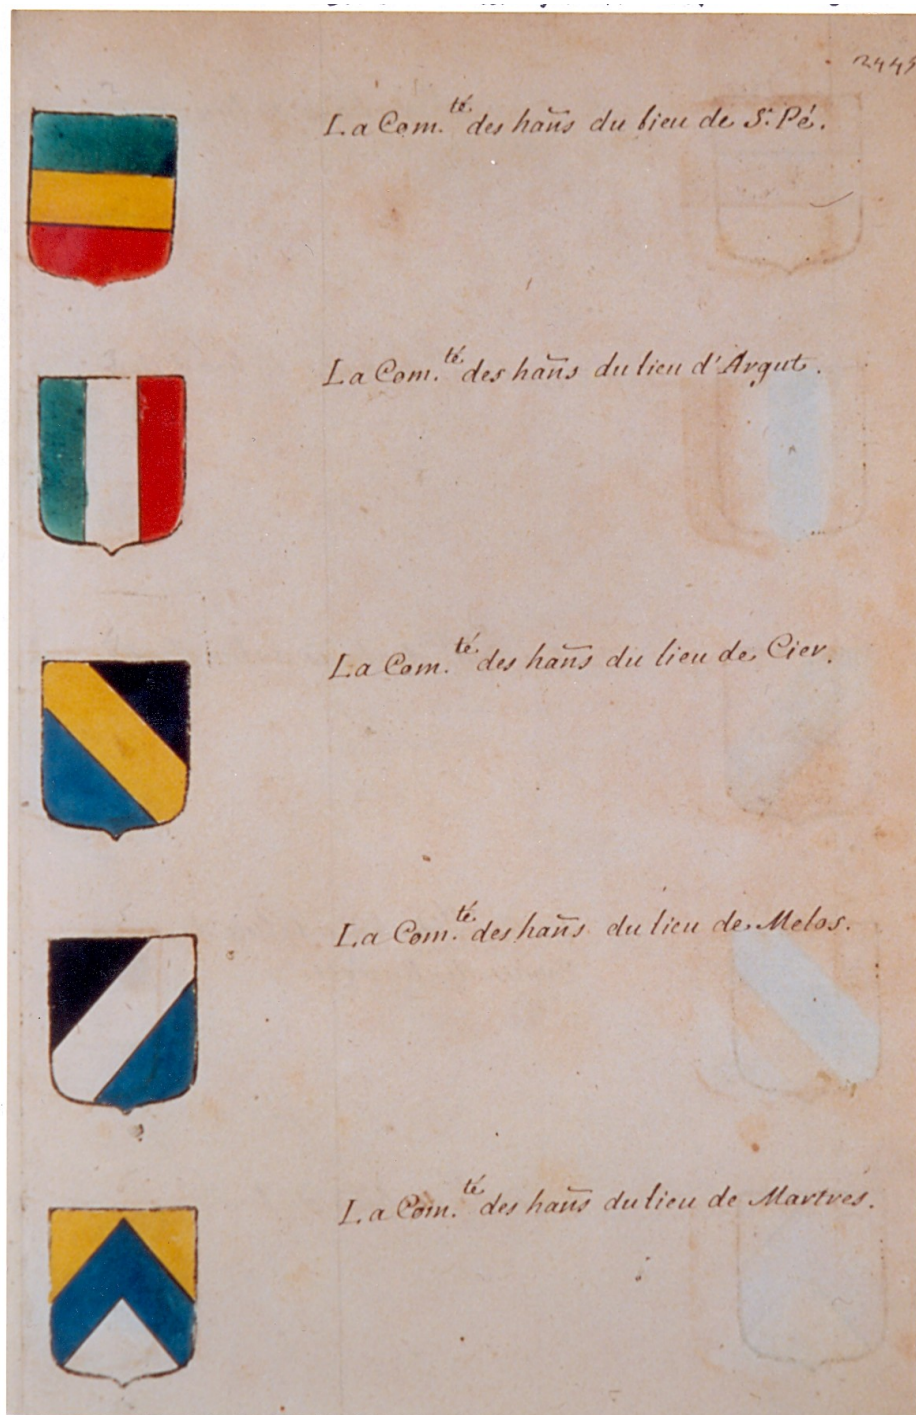 2443
La Com.té des hañs du lieu de S.t Pé.
La Com.té des hañs du lieu d'Argut.
La Com.té des hañs du lieu de Cier.
La Com.té des hañs du lieu de Melos.
La Com.té des hañs du lieu de Martres.